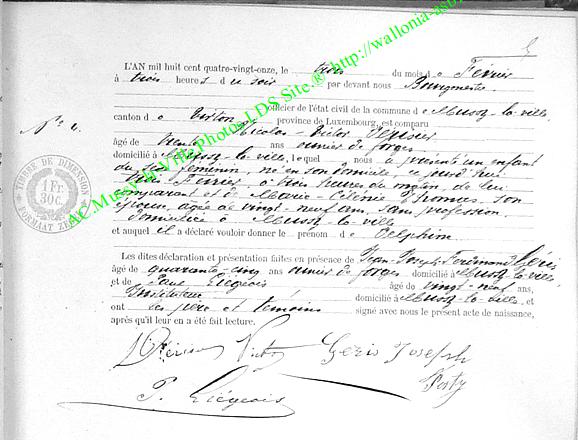 L'AN mil huit cent quatre-vingt-onze, le trois du mois de Février
à trois heures du soir par devant nous Bourgmestre
officier de l'état civil de la commune de Mussy-la-ville
canton de Virton province de Luxembourg, est comparu
Nicolas-Victor Périsier
âgé de trente ans ouvrier de forges
domicilié à Mussy-la-ville, lequel nous a présenté un enfant
du sexe féminin, né en son domicile, ce jourd'hui
trois Février, à trois heures du matin, de lui
comparant et de Marie- Thomas, son
épouse, âgée de vingt-neuf ans, sans profession,
domiciliée à Mussy-la-ville
et auquel il a déclaré vouloir donner le prénom de Delphine
Les dites déclaration et présentation faites en présence de Jean-Joseph-Ferdinand Géris
âgé de quarante-cinq ans ouvrier de forges domicilié à Mussy-la-ville,
et de Paul Liégeois âgé de vingt-neuf ans,
Instituteur domicilié à Mussy-la-ville, et
ont les père et témoins signé avec nous le présent acte de naissance,
après qu'il leur en a été fait lecture.
Victor Geris Joseph
P. Liégeois
N° 4.
TIMBRE DE DIMENSION
1 Fr.
30 c.
AC Mussy-la-Ville Photos LDS Site © http://wallonia-asb